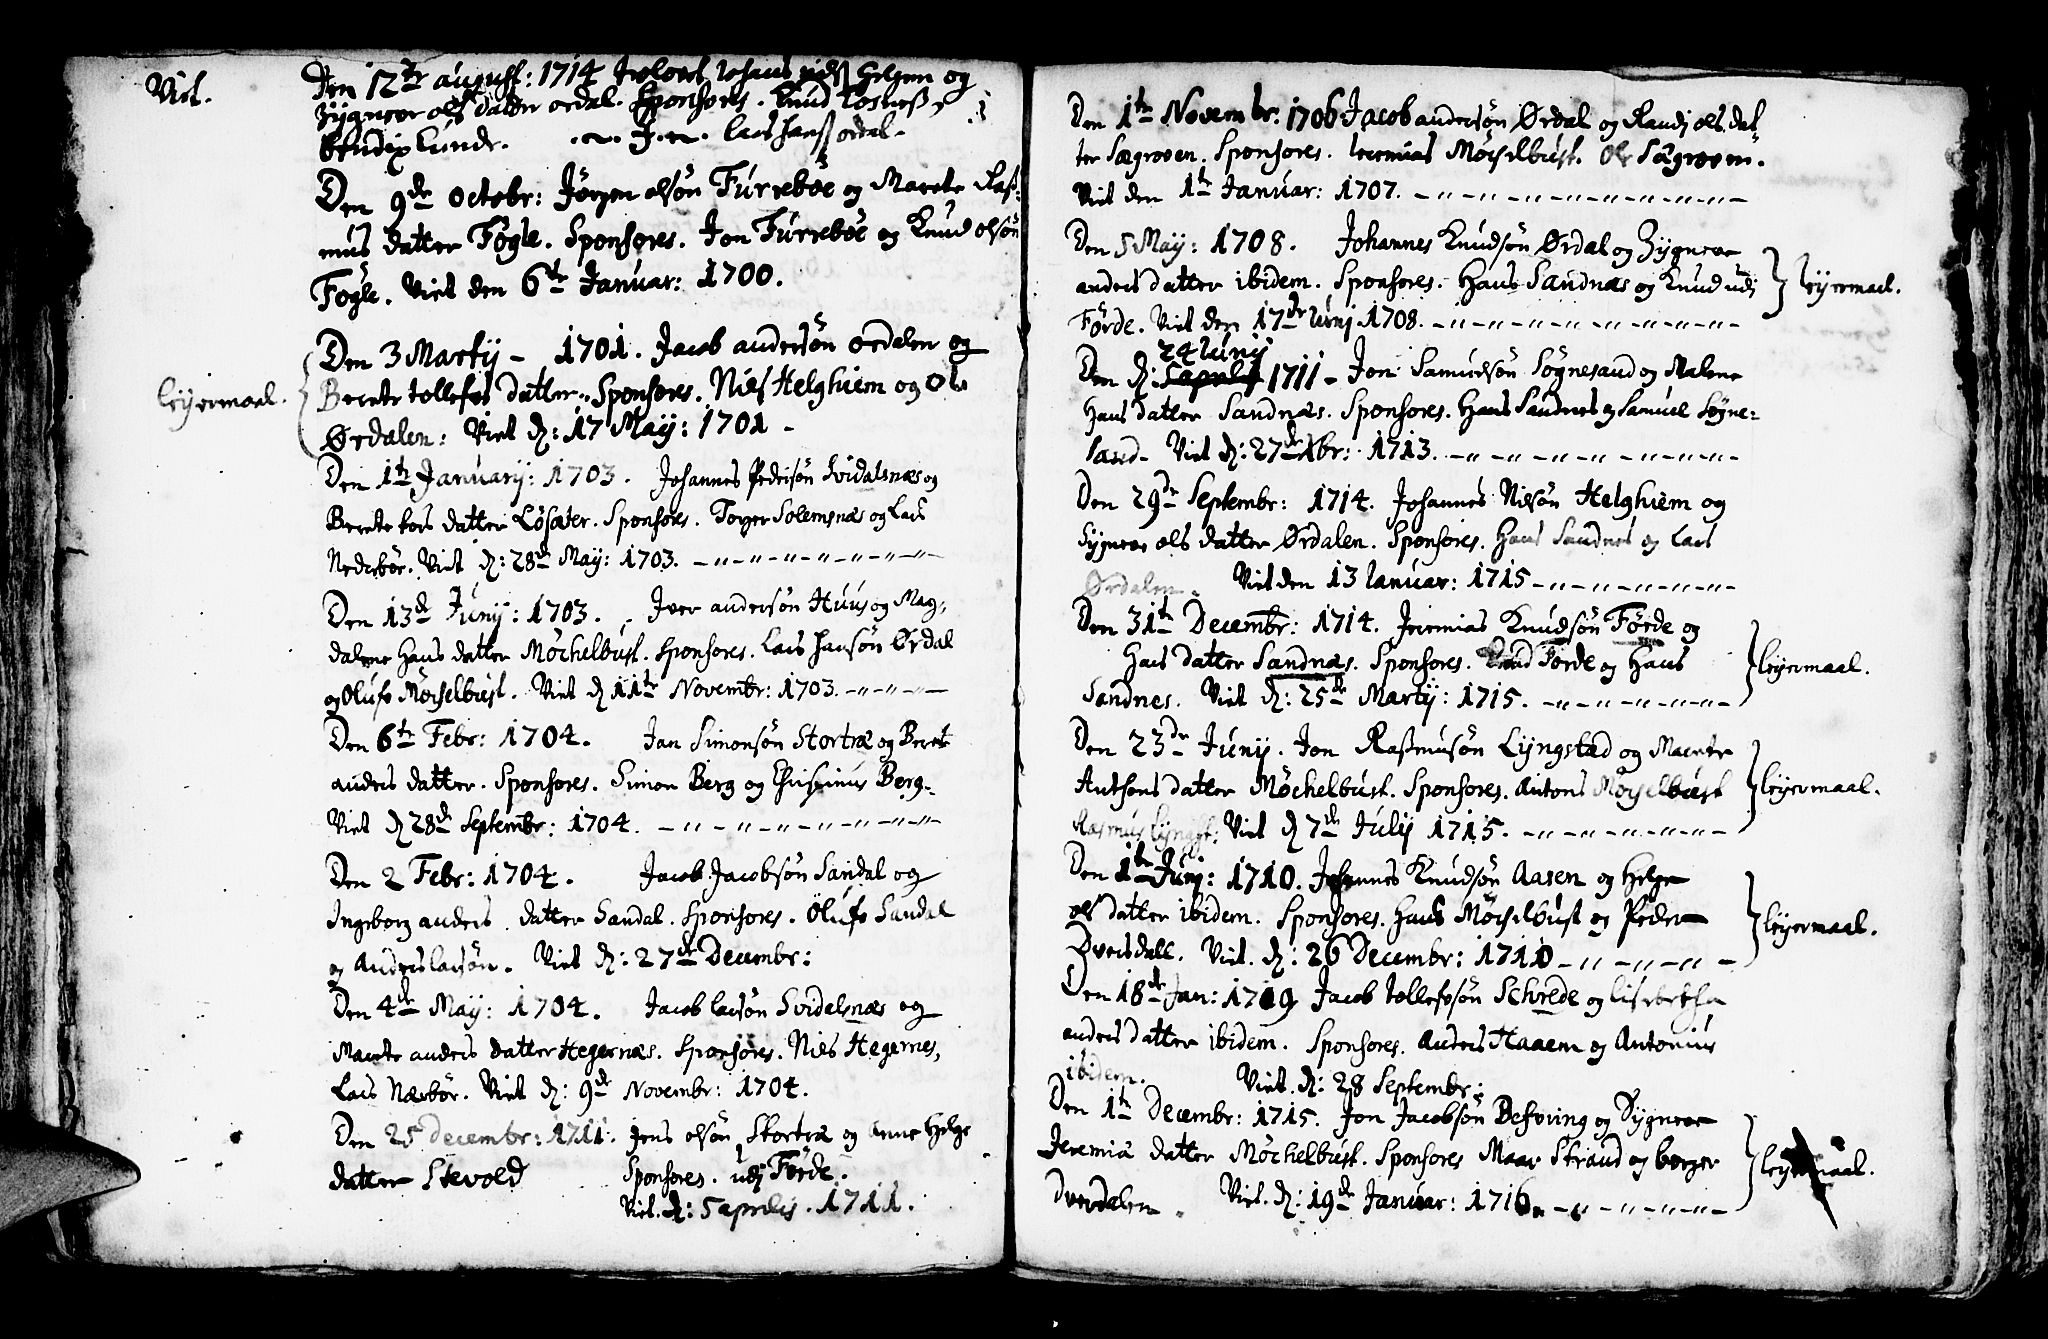 Viet.
Den 12te august: 1714 Johans Helgem og
Zygnær ols datter ordal. Sponsores. Knud
bendix Lunde. Lars Hanss ordal.
Den 9de Octobr: Jörgen olsön Fürreböe og Marete Raß-
mus datter Fögle. Sponsores. Jon Fürreböe og Knud olsön
Fögle. Viet den 6te Januar: 1700.
Den 3 Martij - 1701. Jacob andersön ordalen og
leijermaal.
Berete tollefss datter. Sponsores. Niels Helghiem og Ole
Ørdalen: Viet d: 17 May: 1701 -
Den 1te Januarij: 1703. Johannes Pedersön Svidalsnæs og
Berete Lars datter Løsæter. Sponsores. Torger Solemsnæs og Lars
Nederbör. Viet d: 28de May: 1703.
Den 13de Junij: 1703. Iver andersön Huus og Mag-
dalene Hans datter Möchelbust. Sponsores. Lars Hansön Ørdal
og Oluf Möchelbust. Viet d 11te Novembr: 1703.
Den 6te Febr: 1704. Jan Simonsön Stortræ og Beret
anders datter. Sponsores. Simon Berg og Christinus Berg.
Viet d 28de Septembr: 1704.
Den 2 Febr: 1704. Jacob Jacobsön Sandal og
Ingeborg anders datter Sandal. Sponsores. Oluf Sandal
og Anders larsön. Viet d: 27de Decembr:
Den 4de May: 1704. Jacob larsön Svidalsnæs og
Marete anders datter Hegernæs. Sponsores. Niels Hegernes,
Lars Nærbör. Viet d: 9de Novembr: 1704.
Den 25 Decembr: 1711. Jens olsön Stortræ og Anne Helge
datter Stevold Sponsores. udj Førde.
Viet. d: 5 aprilis. 1711.
Den 1te Novembr. 1706 Jacob andersön Ørdal og Randj ols dat-
ter Sægroven. Sponsores. Ieremias Möchelbust. Ole Sægroven.
Viet den 1te Januar: 1707.
Den 5 May: 1708. Johannes Knudsön Ørdal og Zygnær
anders datter ibidem. Sponsores. Hans Sandnæs og Knud udj
leijermaal.
Førde. Viet den 17de Iunj 1708.
24 Iunij
Den d: 5 aprilis 1711 - Jon Samuelsön Sögnesand og Malene
Hans datter Sandnæs. Sponsores. Hans Sandnes og Samuel Sögne-
sand. Viet d: 27de 1713.
Den 29de Septembr: 1714. Johannes Nilsön Helghiem og
Sygnær ols datter Ørdalen. Sponsores. Hans Sandnes og Lars
Ørdalen. Viet den 13 Ianuar: 1715
Den 31te Decembr: 1714. Jeremias Knudsön Førde og
Hans datter Sandnæs. Sponsores. Knud Førde og Hans
leijermaal.
Sandnes. Viet d: 25de Martij: 1715.
Den 23de Junij. Jon Raßmusön Lyngstad og Marete
Antons datter Möchelbust. Sponsores. Antons Möchelbust
leijermaal.
Rasmus Lyngst: Viet d 7de Julij 1715.
Den 1te Junj: 1710. Johannes Knudsön Aasen og Helge
ols datter ibidem. Sponsores. Hans Möchelbust og Peder
leijermaal.
Dversdall. Viet. d: 26 Decembr: 1710
Den 18de Jan: 1719 Jacob tollefsön Schrede og Lisebetha
anders datter ibidem. Sponsores. Anders Haaem og Antonius
ibidem. Viet. d: 28 Septembr:
Den 1te Decembr: 1715. Jon Jacobsön Befring og Sygnær
Jeremiæ datter Möchelbust. Sponsores Maar Strand og börger
leijermaal.
Dverdalen. Viet. d: 19de Januar: 1716.